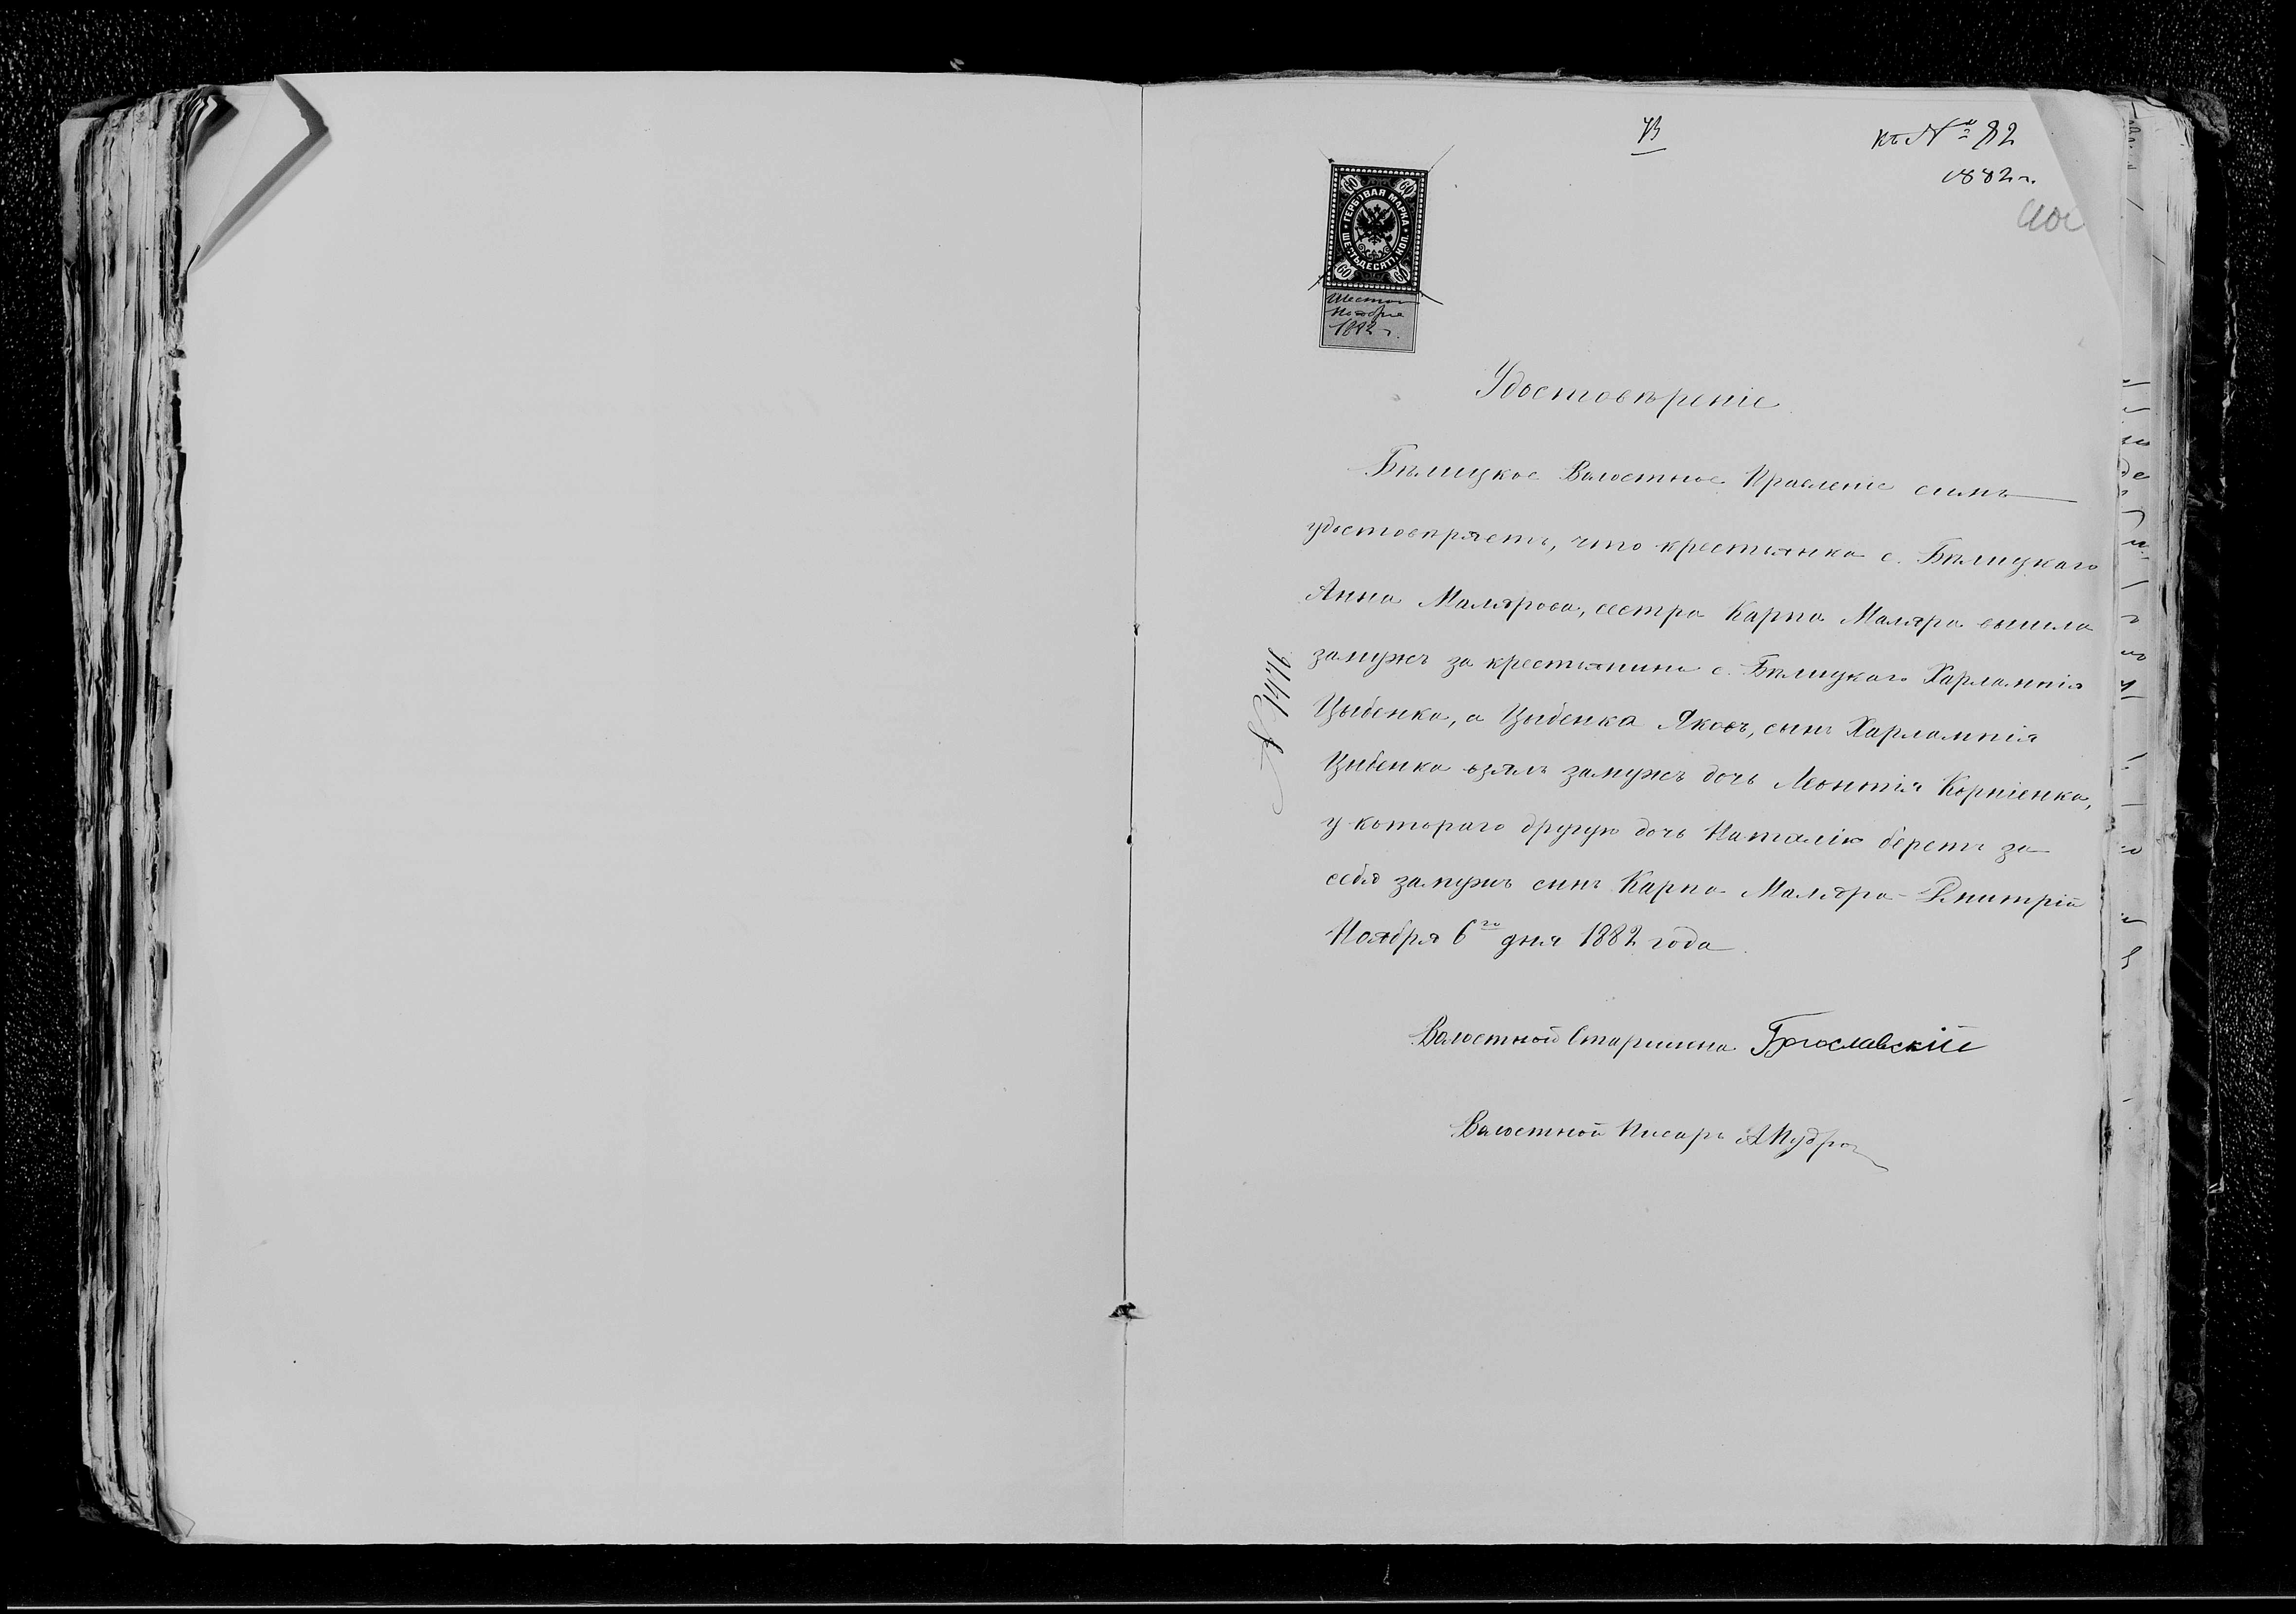 73
къ № 82
1882 г.
60 60
ГЕРБОВАЯ МАРКА
ШЕСТЬДЕСЯТЪ КОП.
60 60
Шестог
Ноября
1882 г.
Удостовѣреніе
Бѣлицкое Волостное Правленіе симъ
удостовѣряетъ, что крестьянка с. Бѣлицкаго
Анна Малярова, сестра Карпа Маляра вышла
замужъ за крестьянина с. Бѣлицкаго Харлампія
Цыбенка, а Цыбенка Яковъ, сынъ Харлампія
Цыбенка взялъ замужъ дочь Леонтія Корніенка,
у котораго другую дочь Наталію беретъ за
себя замужъ сынъ Карпа Маляра - Дмитрій
Ноября 6го дня 1882 года
№ 1476
Волостной Старшина Богославскій
Волостной Писарь